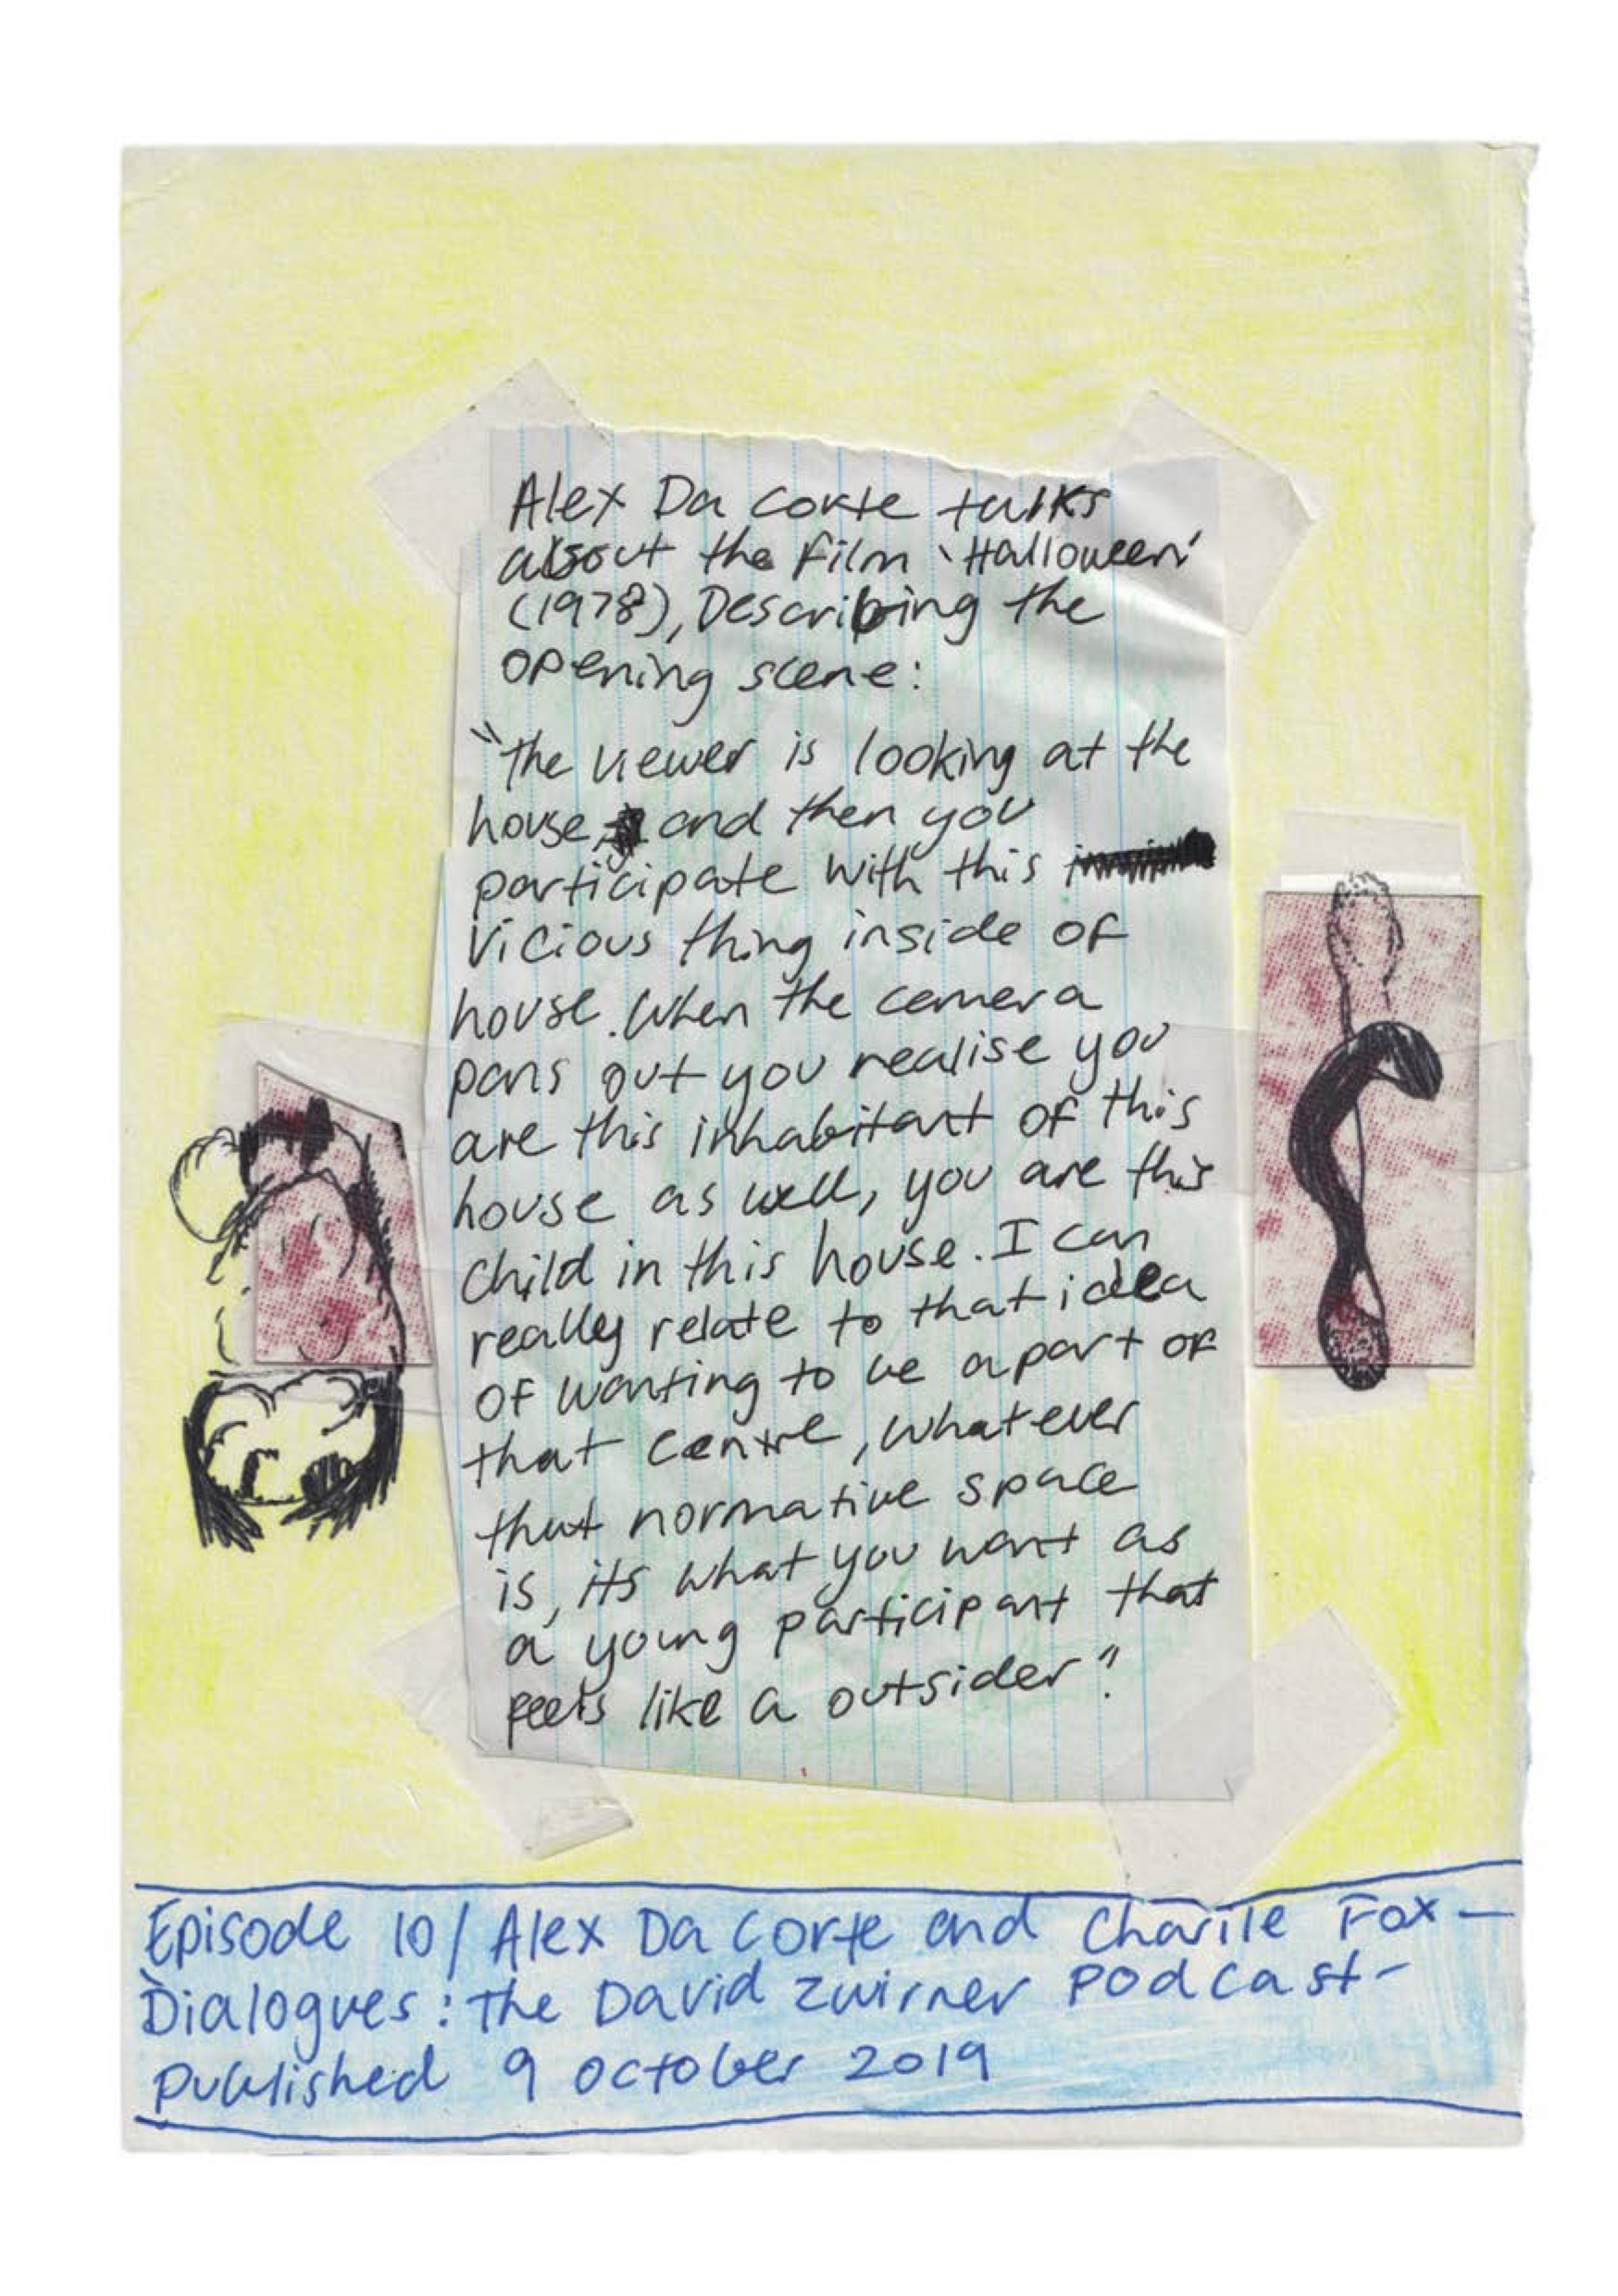 Alex Da Corte talks
about the film 'Halloween'
(1978), Describing the
opening scene:
"The viewer is looking at the
house, and then you
participate with this
vicious thing inside of
house. When the camera
pans out you realise you
are this inhabitant of this
house as well, you are this
child in this house. I can
really relate to that idea
of wanting to be apart of
that centre, whatever
that normative space
is, its what you want as
a young participant that
feels like a outsider".
Episode 10/ Alex Da Corte and Charlie Fox —
Dialogues: The David Zwirner Podcast -
Published 9 October 2019